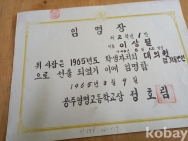 임명장
제 2 학년 1 반
이상필
위 사람은 1965년도 학생자치회 대의원
으로 선출 되었기 이에 임명함
1965년 3월 9일
공주영명고등학교장
kobay